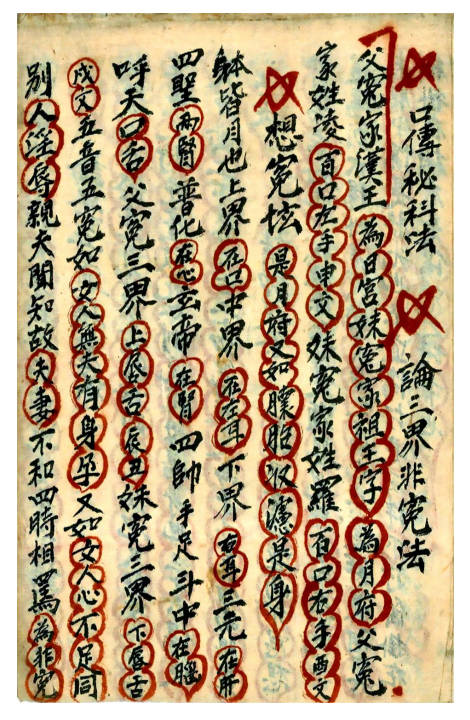 口傳秘科法 論三界非冤法
父冤家漢王為日宮妹冤家祖王字為月府父冤
家姓凌百口左手申文妹冤家姓羅有口右手酉文
想冤坛是月府又如朦胧汉濃是身
躰皆月也上界在口中界在左耳下界右耳三元在肝
四聖兩腎普化在心玄帝在腎四帥手足斗中在腦
呼天口舌父冤三界上唇舌辰丑妹冤三界下唇舌
戌又五音五冤如女人無夫有身孕又如女人心不足同
別人淫辱親夫聞知故夫妻不和四時相罵為非冤